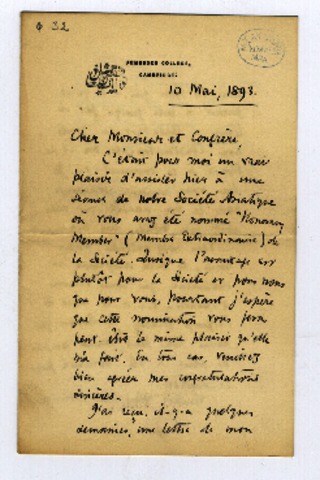 φ 32
PEMBROKE COLLEGE,
CAMBRIDGE.
10 Mai, 1893.
Cher Monsieur et Confrère,
C'était pour moi un vrai
plaisir d'assister hier à une
séance de notre Société Asiatique
où vous avez été nommé "Honorary
Member" (Membre Extraordinaire) de
la Société. Quoique l'avantage est
plutôt pour la Société et pour nous
que pour vous, pourtant j'espère
que cette nomination vous fera
peut-être le même plaisir qu'elle
m'a fait. En tous cas, veuillez
bien agréer mes congratulations
sincères.
J'ai reçu, il-y-a quelques
semaines, une lettre de mon